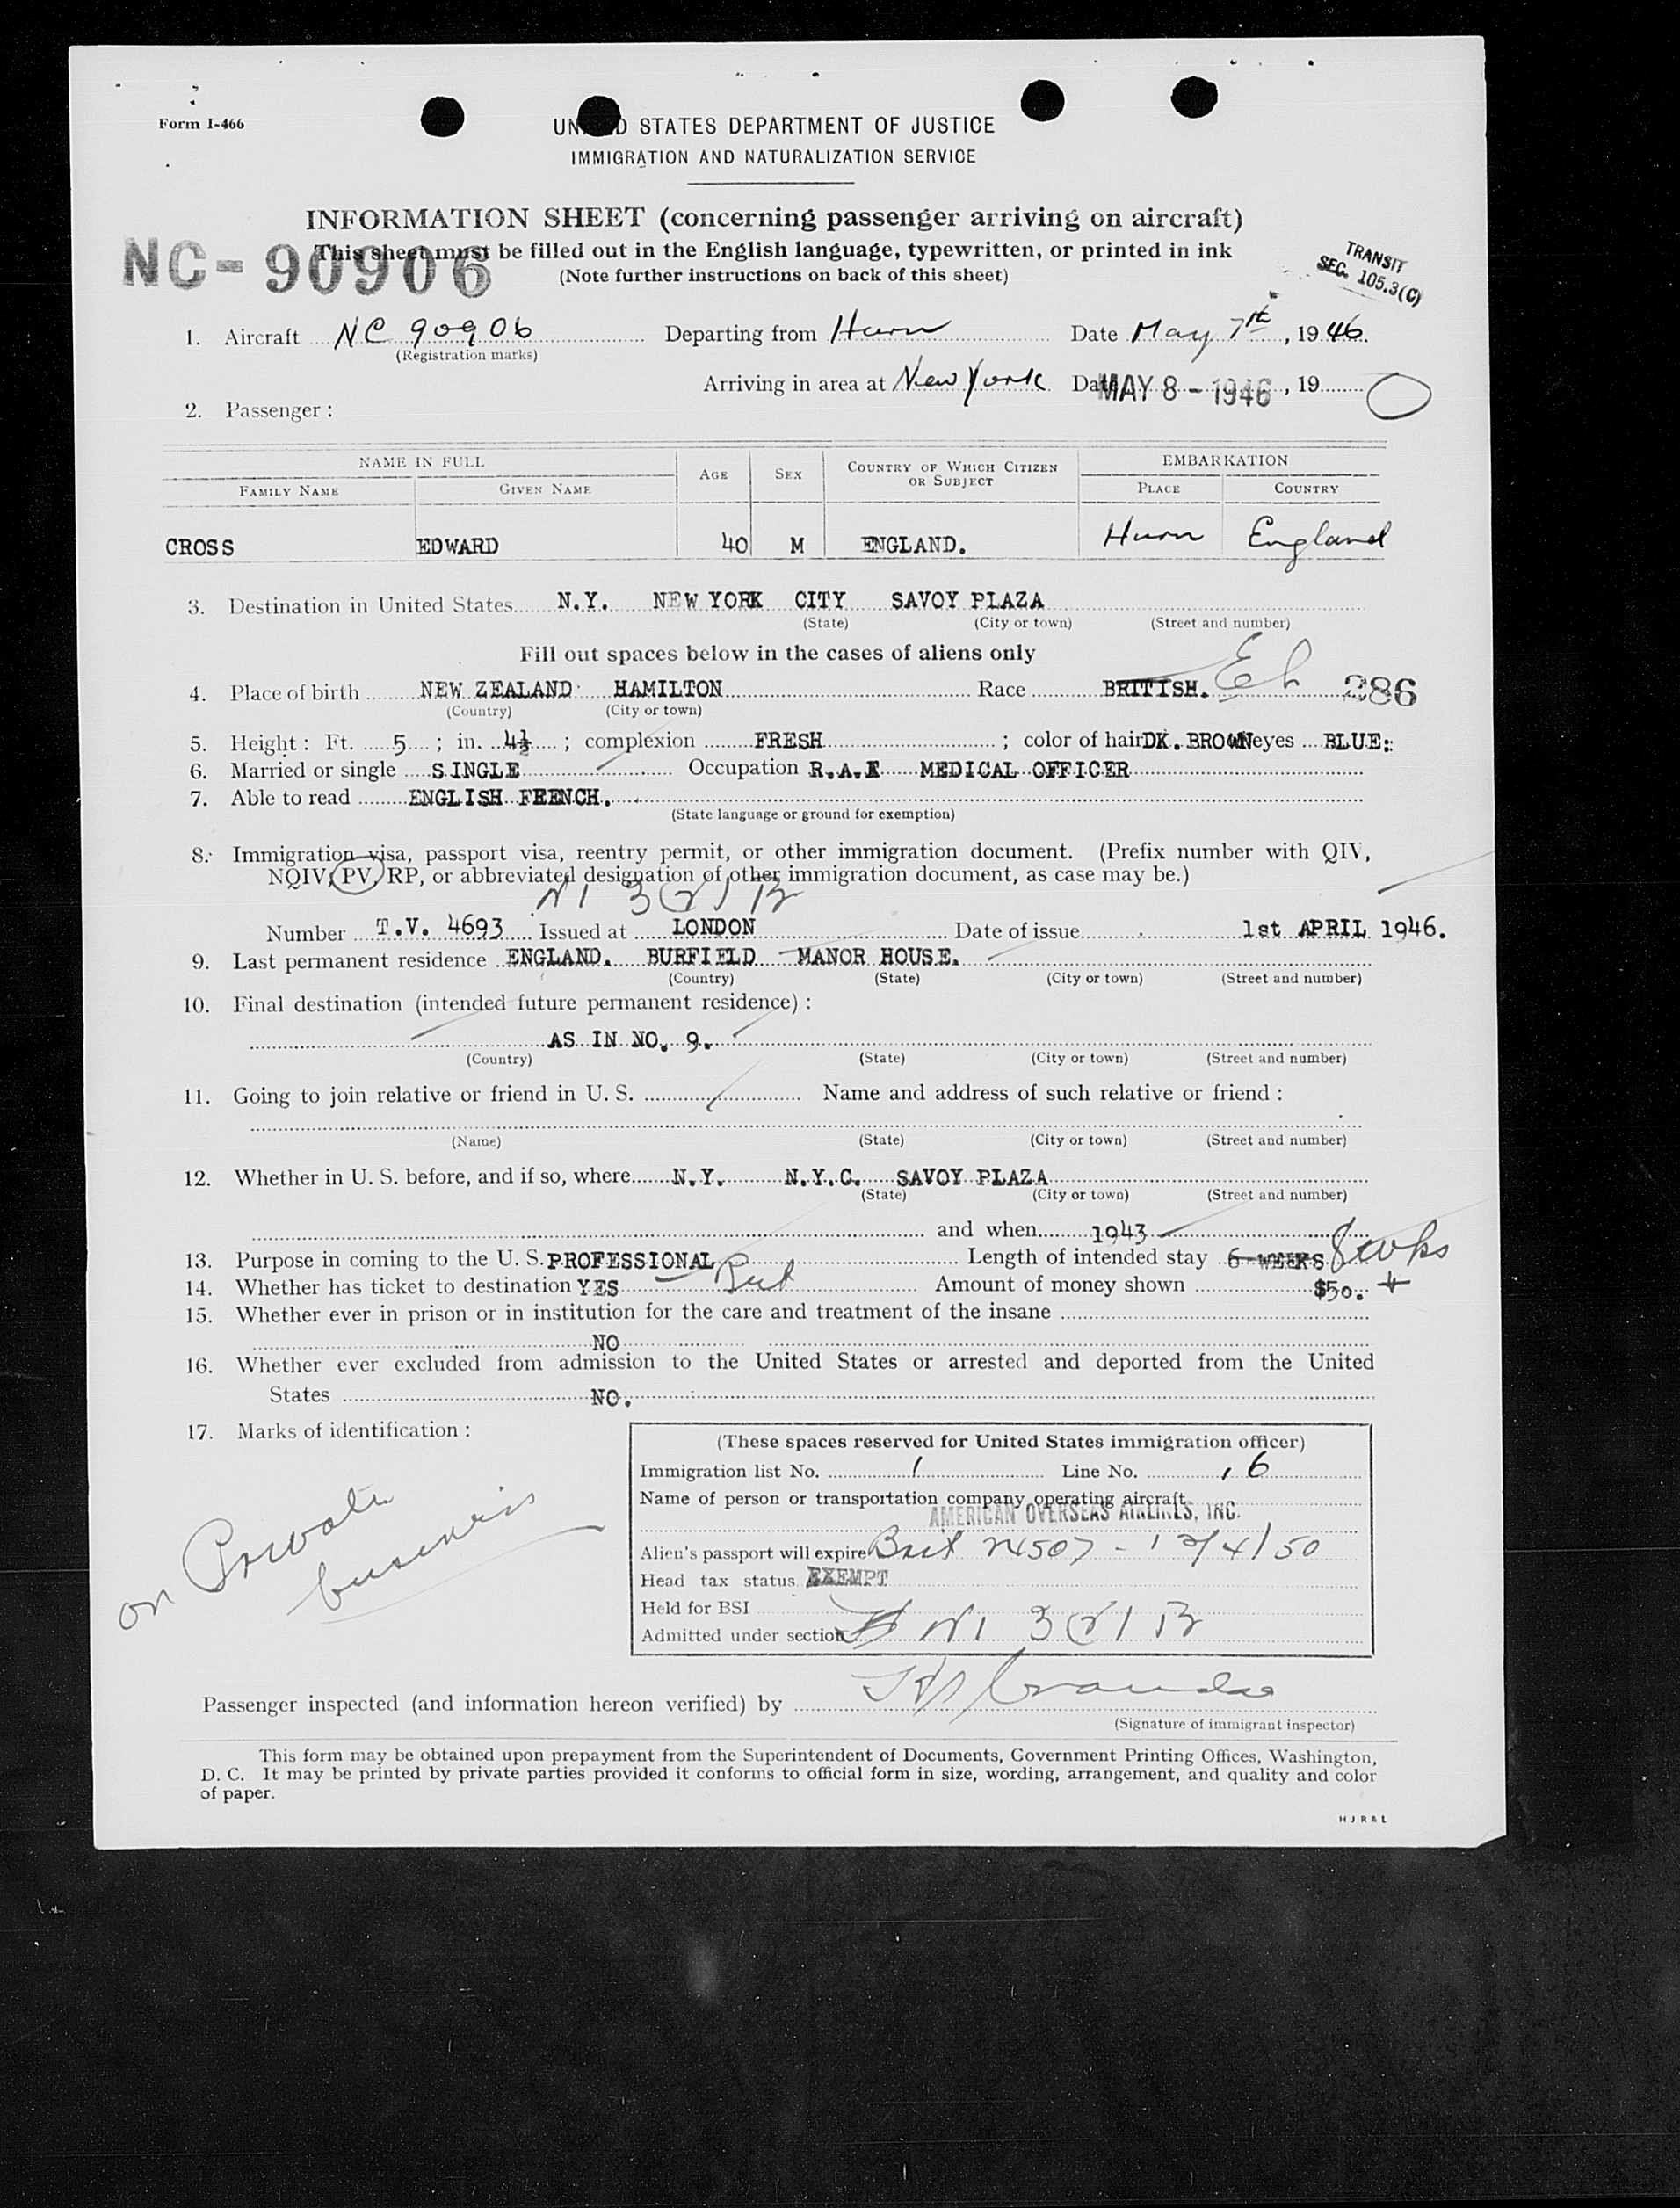 Form I-466
UNITED STATES DEPARTMENT OF JUSTICE
IMMIGRATION AND NATURALIZATION SERVICE
INFORMATION SHEET (concerning passenger arriving on aircraft)
This sheet must be filled out in the English language, typewritten, or printed in ink
NC-90906
(Note further instructions on back of this sheet)
TRANSIT
SEC. 105.3(C)
1. Aircraft NC 90906 Departing from Hurn Date May 7th, 1946.
(Registration marks)
Arriving in area at New York Date MAY 8 - 1946, 19
2. Passenger:
NAME IN FULL AGE SEX COUNTRY OF WHICH CITIZEN OR SUBJECT EMBARKATION
FAMILY NAME GIVEN NAME PLACE COUNTRY
CROSS EDWARD 40 M ENGLAND. Hurn England
3. Destination in United States N.Y. NEW YORK CITY SAVOY PLAZA
(State) (City or town) (Street and number)
Fill out spaces below in the cases of aliens only
4. Place of birth NEW ZEALAND HAMILTON Race BRITISH. 286
(Country) (City or town)
5. Height: Ft. 5; in. 4½; complexion FRESH; color of hair DK. BROWN eyes BLUE:
6. Married or single SINGLE Occupation R.A.F MEDICAL OFFICER
7. Able to read ENGLISH FRENCH.
(State language or ground for exemption)
8. Immigration visa, passport visa, reentry permit, or other immigration document. (Prefix number with QIV,
NQIV, PV, RP, or abbreviated designation of other immigration document, as case may be.)
Number T.V. 4693 Issued at LONDON Date of issue 1st APRIL 1946.
9. Last permanent residence ENGLAND. BURFIELD MANOR HOUSE.
(Country) (State) (City or town) (Street and number)
10. Final destination (intended future permanent residence):
AS IN NO. 9.
(Country) (State) (City or town) (Street and number)
11. Going to join relative or friend in U. S. Name and address of such relative or friend:
(Name) (State) (City or town) (Street and number)
12. Whether in U. S. before, and if so, where N.Y. N.Y.C. SAVOY PLAZA
(State) (City or town) (Street and number)
and when 1943
13. Purpose in coming to the U. S. PROFESSIONAL Length of intended stay 6 WEEKS 8 wks
14. Whether has ticket to destination YES Amount of money shown $50.
15. Whether ever in prison or in institution for the care and treatment of the insane
NO
16. Whether ever excluded from admission to the United States or arrested and deported from the United
States NO.
17. Marks of identification:
on Private
business
(These spaces reserved for United States immigration officer)
Immigration list No. 1 Line No. 6
Name of person or transportation company operating aircraft
AMERICAN OVERSEAS AIRLINES, INC.
Alien's passport will expire Brit 24507 - 12/4/50
Head tax status EXEMPT
Held for BSI
Admitted under section
Passenger inspected (and information hereon verified) by
(Signature of immigrant inspector)
This form may be obtained upon prepayment from the Superintendent of Documents, Government Printing Offices, Washington,
D. C. It may be printed by private parties provided it conforms to official form in size, wording, arrangement, and quality and color
of paper.
H J R & L